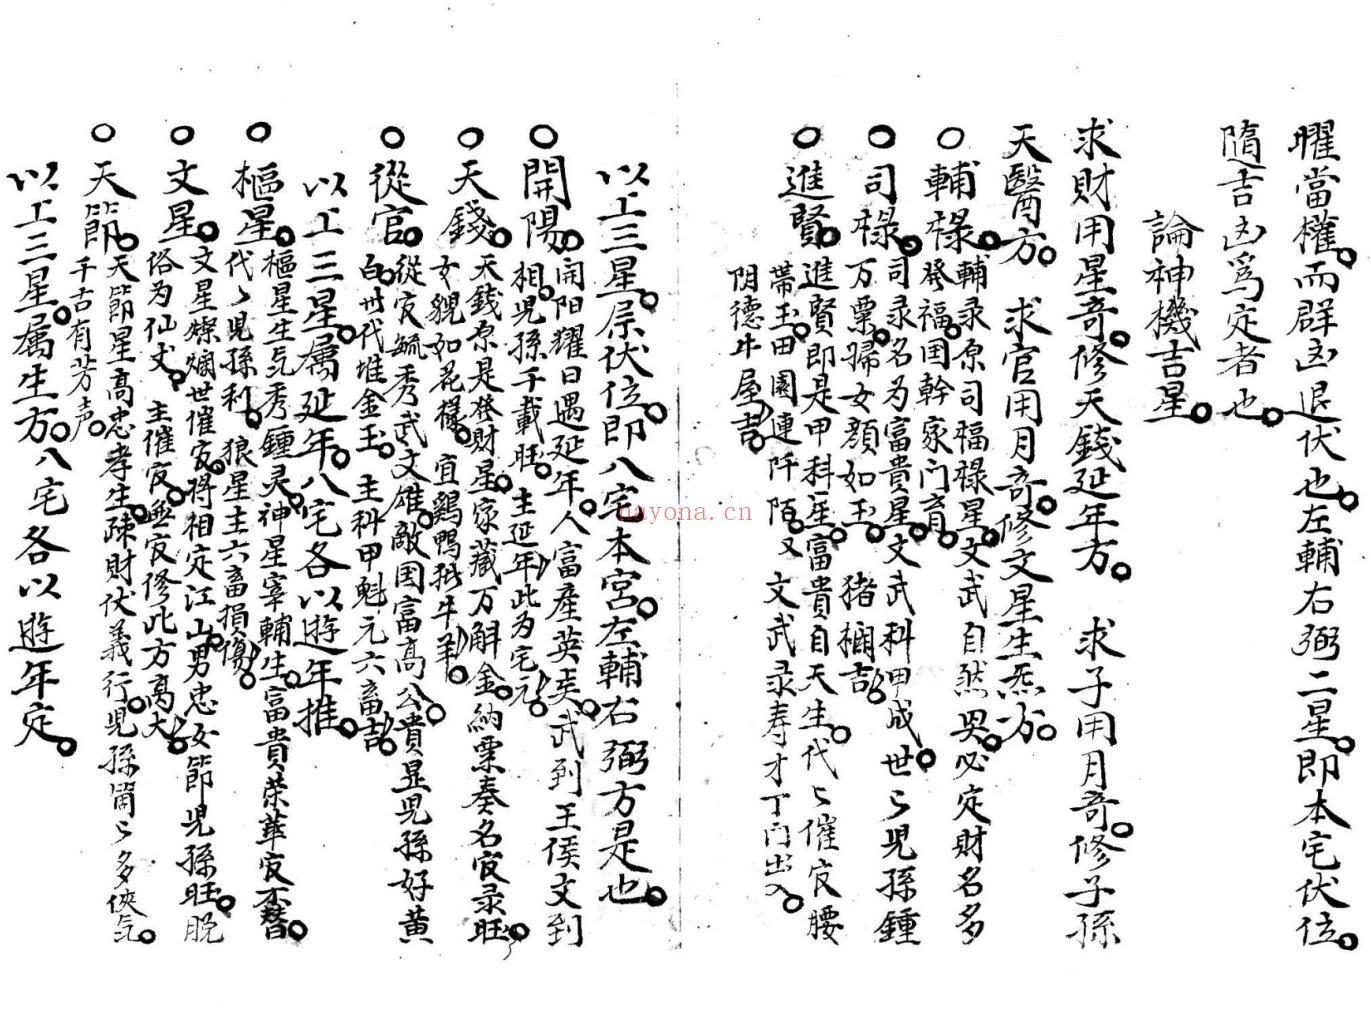 曜當權而群凶退伏也左輔右弼二星即本宅伏位
隨吉凶爲定者也
論神機吉星
求財用星奇修天錢延年方 求子用月奇修子孫
天醫方 求官用月奇修文星生炁方
○輔祿 輔录原司福祿星文武自然異必定財名多
發福田幹家门育
○司祿 司录名为富貴星文武科甲成世〻児孫鍾
万粟婦女顔如玉 猪欄吉
○進賢 進賢即是甲科星富貴自天生代〻催官腰
帯玉田園連阡陌又 文武录寿才丁门出入
阴德牛屋吉
以上三星原伏位即八宅本宮左輔右弼方是也
○開陽 開阳耀日遇延年人富産英英武到王侯文到
相児孫千載旺 主延年此为宅元
○天錢 天钱原是發財星家藏万斛金納粟奏名官录旺
女貌如花樣 宜鷄鴨猪牛羊
○從官 從官毓秀武文雄敵国富高公貴显児孫好黄
白世代堆金玉 主科甲魁元六畜吉
以上三星屬延年八宅各以遊年推
○樞星 樞星生气秀鍾灵神星宰輔生富貴荣華官不替
代〻児孫利 狼星主六畜損傷
○文星 文星燦爛世催官将相定江山男忠女節児孫旺脱
俗为仙丈 主催官無官修此方高大
○天節 天節星高忠孝生疎財伏義行児孫箇〻多侠气
千古有芳声
以上三星屬生方八宅各以遊年定
nayona.cn